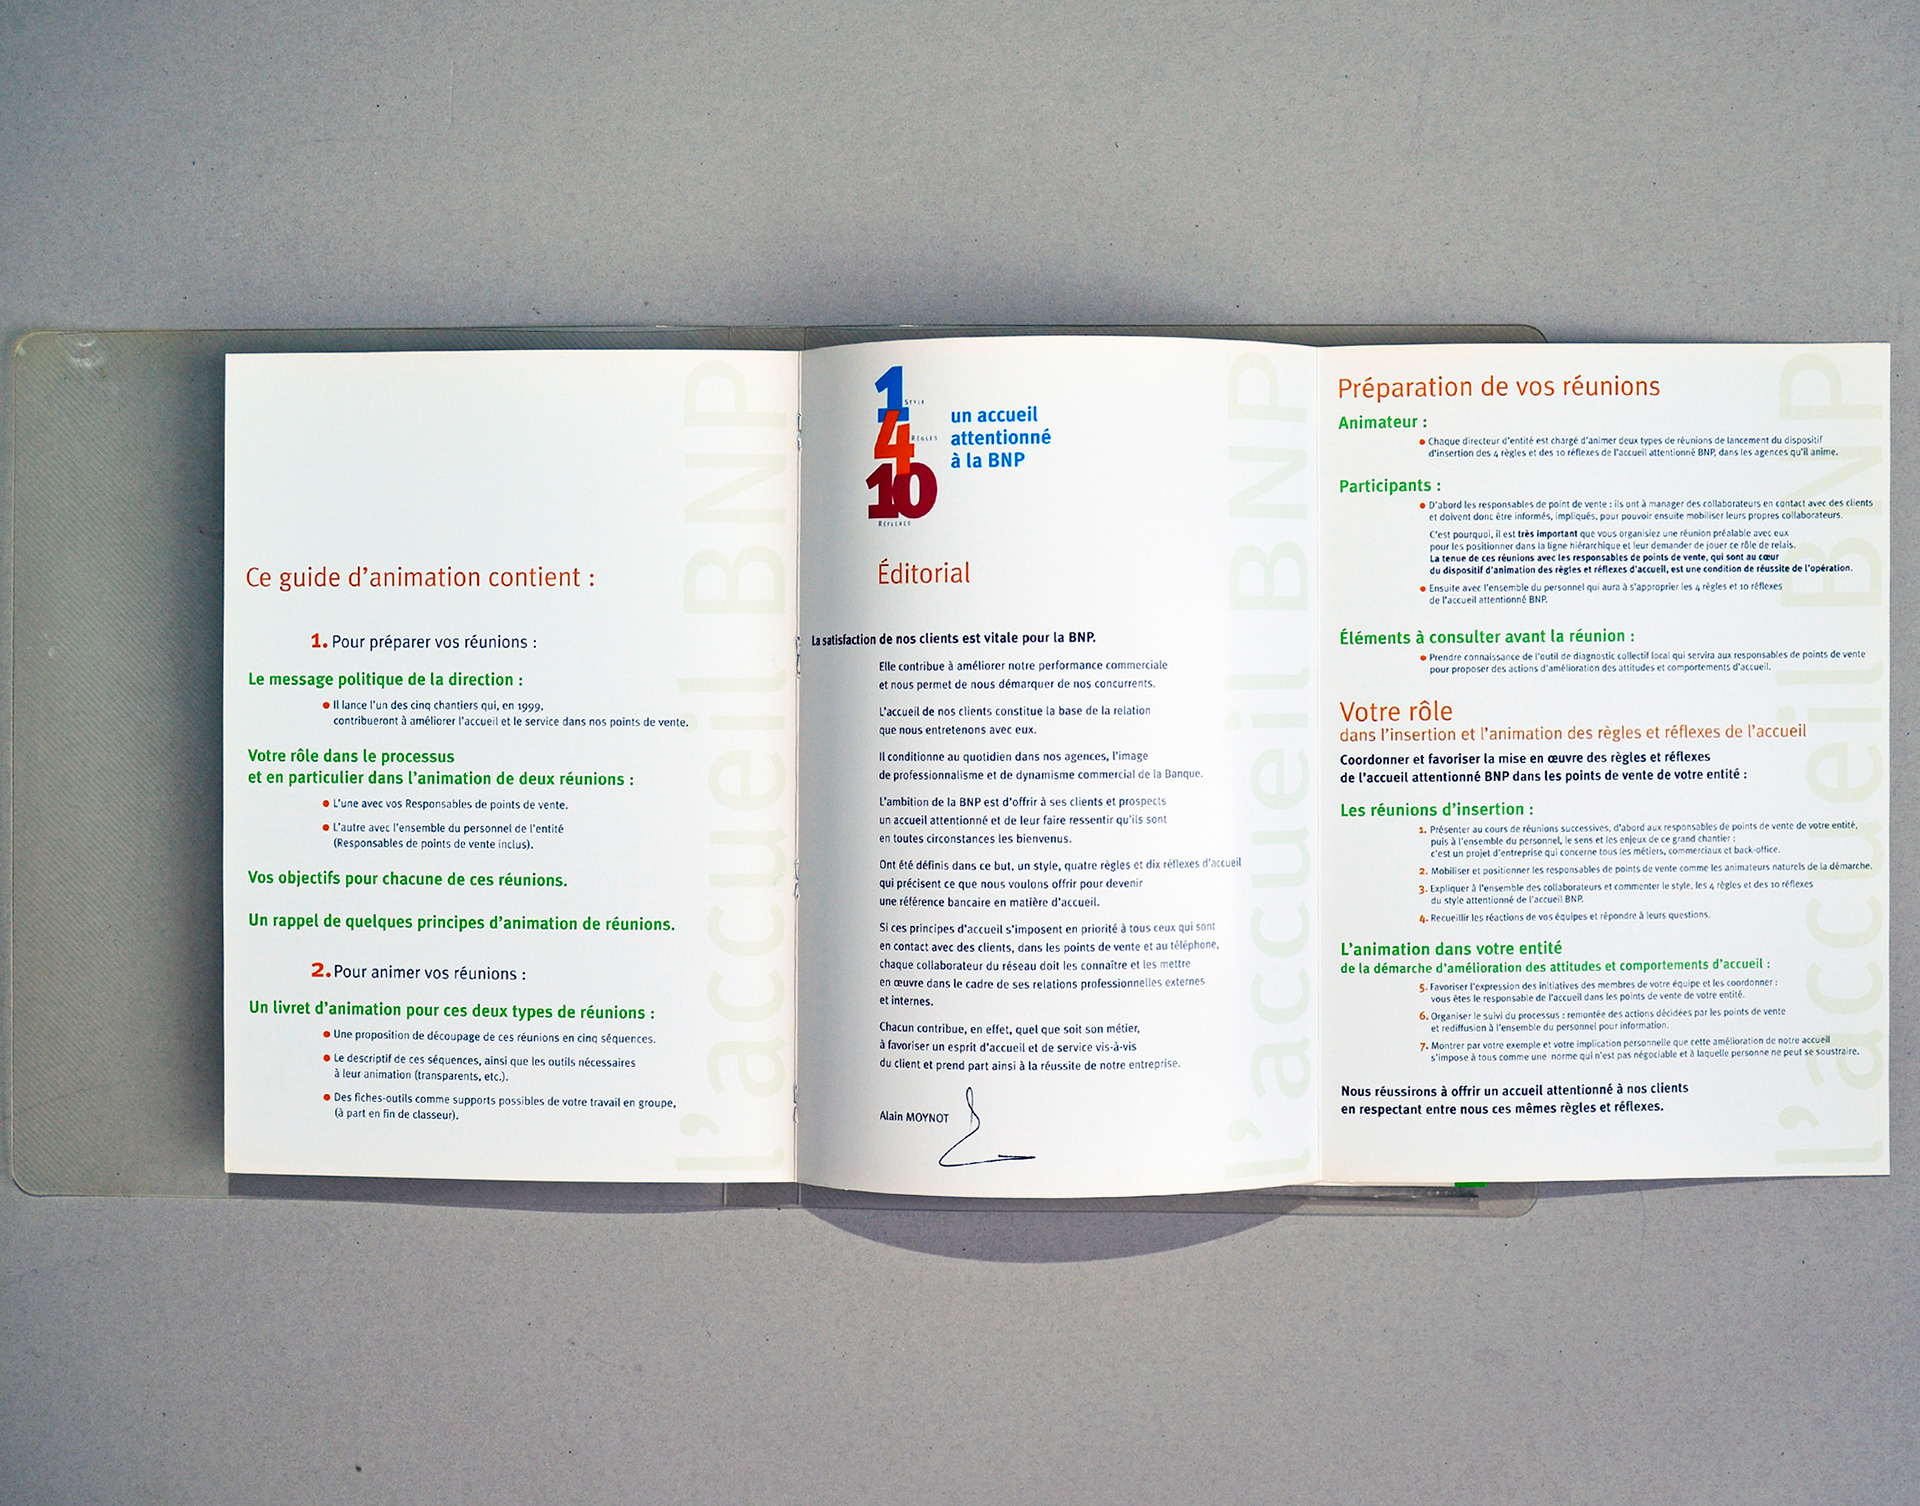 Ce guide d'animation contient :
1. Pour préparer vos réunions :
Le message politique de la direction :
• Il lance l'un des cinq chantiers qui, en 1999,
contribueront à améliorer l'accueil et le service dans nos points de vente.
Votre rôle dans le processus
et en particulier dans l'animation de deux réunions :
• L'une avec vos Responsables de points de vente.
• L'autre avec l'ensemble du personnel de l'entité
(Responsables de points de vente inclus).
Vos objectifs pour chacune de ces réunions.
Un rappel de quelques principes d'animation de réunions.
2. Pour animer vos réunions :
Un livret d'animation pour ces deux types de réunions :
• Une proposition de découpage de ces réunions en cinq séquences.
• Le descriptif de ces séquences, ainsi que les outils nécessaires
à leur animation (transparents, etc.).
• Des fiches-outils comme supports possibles de votre travail en groupe,
(à part en fin de classeur).
l'accueil BNP
1 STYLE
4 RÈGLES
10
RÉFLEXES
un accueil
attentionné
à la BNP
Éditorial
La satisfaction de nos clients est vitale pour la BNP.
Elle contribue à améliorer notre performance commerciale
et nous permet de nous démarquer de nos concurrents.
L'accueil de nos clients constitue la base de la relation
que nous entretenons avec eux.
Il conditionne au quotidien dans nos agences, l'image
de professionnalisme et de dynamisme commercial de la Banque.
L'ambition de la BNP est d'offrir à ses clients et prospects
un accueil attentionné et de leur faire ressentir qu'ils sont
en toutes circonstances les bienvenus.
Ont été définis dans ce but, un style, quatre règles et dix réflexes d'accueil
qui précisent ce que nous voulons offrir pour devenir
une référence bancaire en matière d'accueil.
Si ces principes d'accueil s'imposent en priorité à tous ceux qui sont
en contact avec des clients, dans les points de vente et au téléphone,
chaque collaborateur du réseau doit les connaître et les mettre
en œuvre dans le cadre de ses relations professionnelles externes
et internes.
Chacun contribue, en effet, quel que soit son métier,
à favoriser un esprit d'accueil et de service vis-à-vis
du client et prend part ainsi à la réussite de notre entreprise.
Alain MOYNOT
l'accueil BNP
Préparation de vos réunions
Animateur :
• Chaque directeur d'entité est chargé d'animer deux types de réunions de lancement du dispositif
d'insertion des 4 règles et des 10 réflexes de l'accueil attentionné BNP, dans les agences qu'il anime.
Participants :
• D'abord les responsables de point de vente : ils ont à manager des collaborateurs en contact avec des clients
et doivent donc être informés, impliqués, pour pouvoir ensuite mobiliser leurs propres collaborateurs.
C'est pourquoi, il est très important que vous organisiez une réunion préalable avec eux
pour les positionner dans la ligne hiérarchique et leur demander de jouer ce rôle de relais.
La tenue de ces réunions avec les responsables de points de vente, qui sont au cœur
du dispositif d'animation des règles et réflexes d'accueil, est une condition de réussite de l'opération.
• Ensuite avec l'ensemble du personnel qui aura à s'approprier les 4 règles et 10 réflexes
de l'accueil attentionné BNP.
Éléments à consulter avant la réunion :
• Prendre connaissance de l'outil de diagnostic collectif local qui servira aux responsables de points de vente
pour proposer des actions d'amélioration des attitudes et comportements d'accueil.
Votre rôle
dans l'insertion et l'animation des règles et réflexes de l'accueil
Coordonner et favoriser la mise en œuvre des règles et réflexes
de l'accueil attentionné BNP dans les points de vente de votre entité :
Les réunions d'insertion :
1. Présenter au cours de réunions successives, d'abord aux responsables de points de vente de votre entité,
puis à l'ensemble du personnel, le sens et les enjeux de ce grand chantier :
c'est un projet d'entreprise qui concerne tous les métiers, commerciaux et back-office.
2. Mobiliser et positionner les responsables de points de vente comme les animateurs naturels de la démarche.
3. Expliquer à l'ensemble des collaborateurs et commenter le style, les 4 règles et des 10 réflexes
du style attentionné de l'accueil BNP.
4. Recueillir les réactions de vos équipes et répondre à leurs questions.
L'animation dans votre entité
de la démarche d'amélioration des attitudes et comportements d'accueil :
5. Favoriser l'expression des initiatives des membres de votre équipe et les coordonner :
vous êtes le responsable de l'accueil dans les points de vente de votre entité.
6. Organiser le suivi du processus : remontée des actions décidées par les points de vente
et rediffusion à l'ensemble du personnel pour information.
7. Montrer par votre exemple et votre implication personnelle que cette amélioration de notre accueil
s'impose à tous comme une norme qui n'est pas négociable et à laquelle personne ne peut se soustraire.
Nous réussirons à offrir un accueil attentionné à nos clients
en respectant entre nous ces mêmes règles et réflexes.
l'accueil BNP